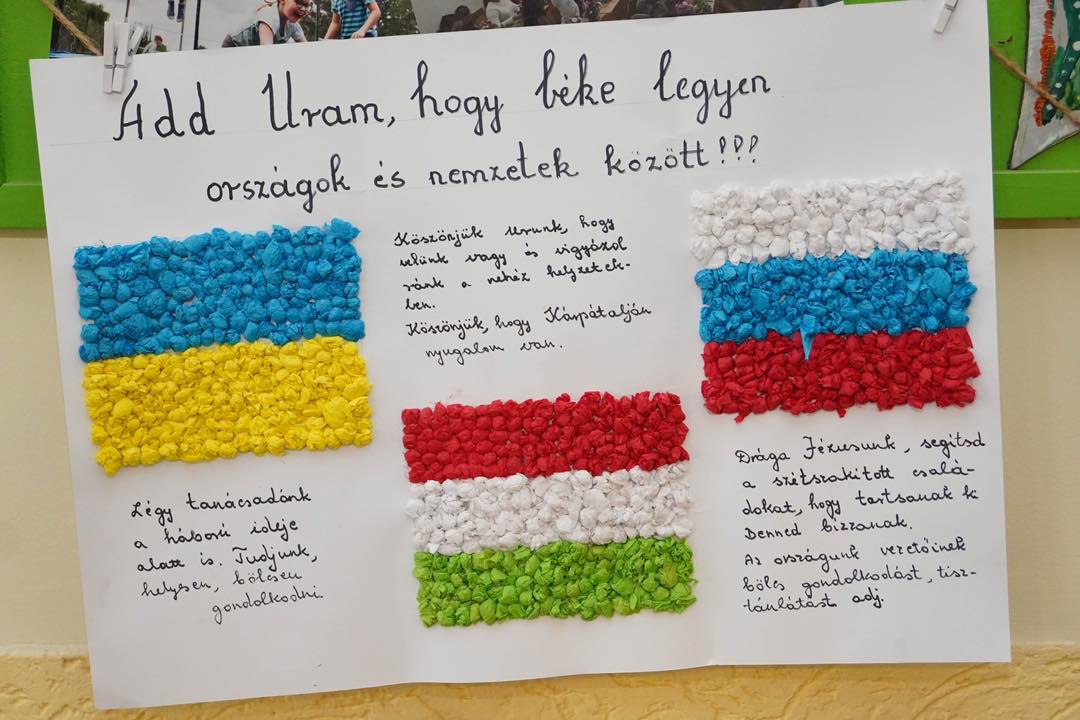 Add Uram, hogy béke legyen
országok és nemzetek között!!!
Köszönjük Urunk, hogy
velünk vagy és vigyázol
ránk a nehéz helyzetek-
ben.
Köszönjük, hogy Kárpátalján
nyugalom van.
Légy tanácsadónk
a háború ideje
alatt is. Tudjunk,
helyesen, bölcsen
gondolkodni.
Drága Jézusunk, segítsd
a szétszakított csalá-
dokat, hogy tartsanak ki
Benned bízzanak.
Az országunk vezetőinek
bölcs gondolkodást, tisz-
tánlátást adj.